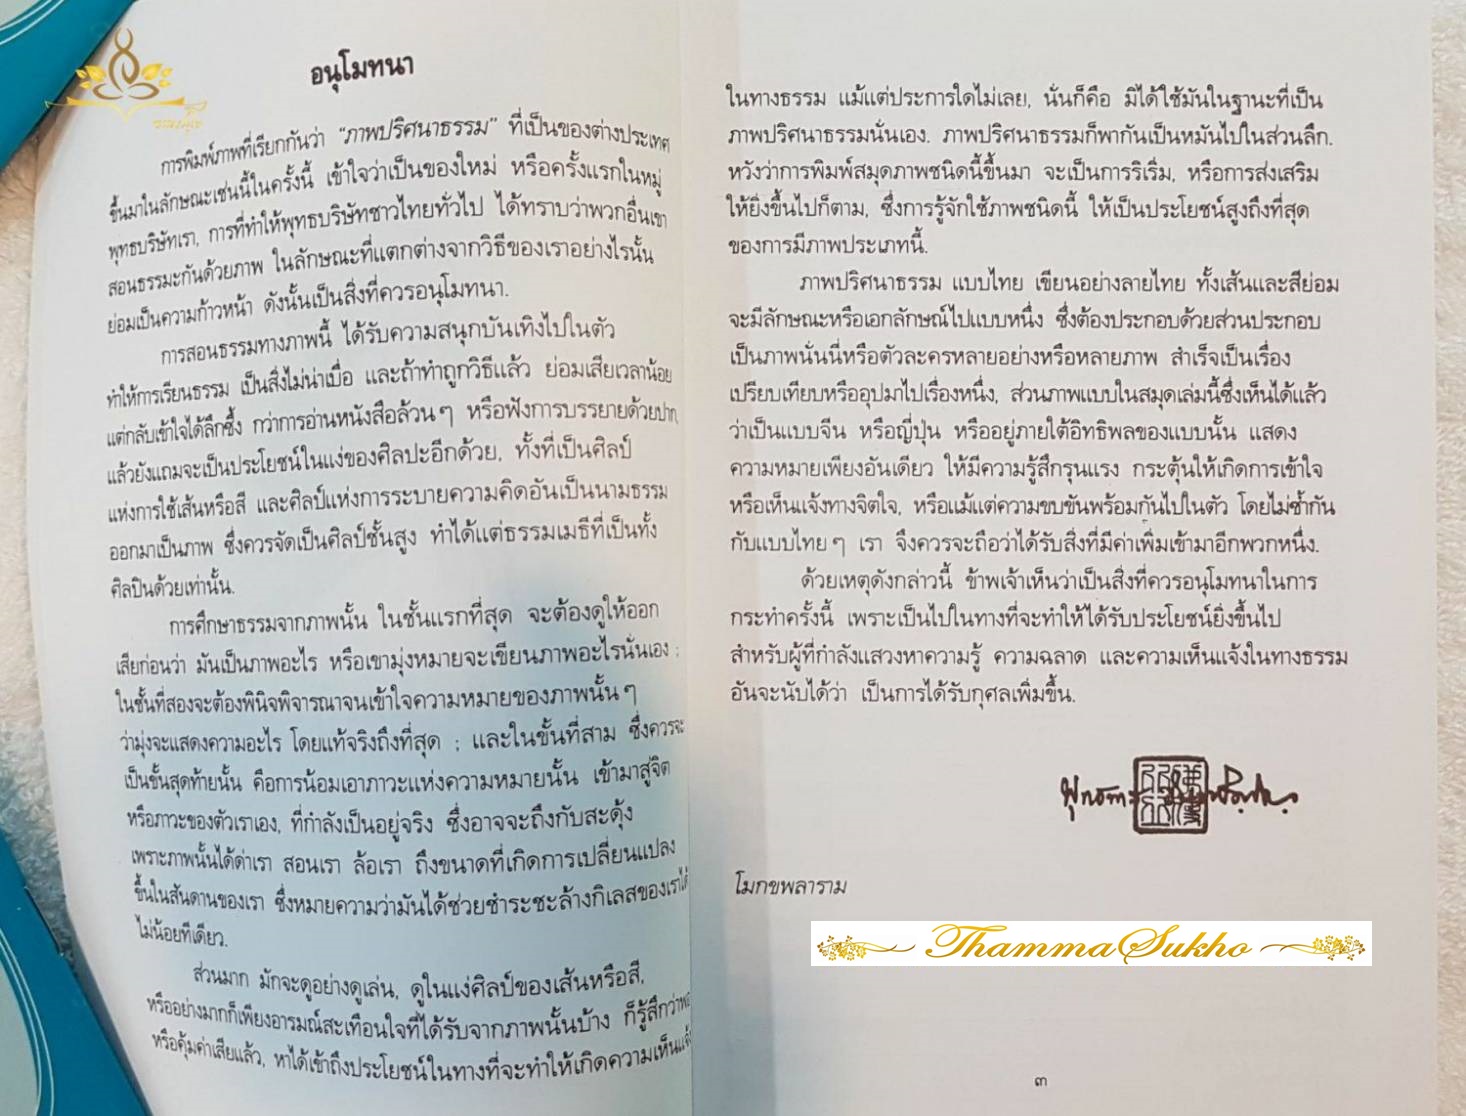 อนุโมทนา
การพิมพ์ภาพที่เรียกกันว่า “ภาพปริศนาธรรม” ที่เป็นของต่างประเทศ
ขึ้นมาในลักษณะเช่นนี้ในครั้งนี้ เข้าใจว่าเป็นของใหม่ หรือครั้งแรกในหมู่
พุทธบริษัทเรา, การที่ทำให้พุทธบริษัทชาวไทยทั่วไป ได้ทราบว่าพวกอื่นเขา
สอนธรรมะกันด้วยภาพ ในลักษณะที่แตกต่างจากวิธีของเราอย่างไรนั้น
ย่อมเป็นความก้าวหน้า ดังนั้นเป็นสิ่งที่ควรอนุโมทนา.
การสอนธรรมทางภาพนี้ ได้รับความสนุกบันเทิงไปในตัว
ทำให้การเรียนธรรม เป็นสิ่งไม่น่าเบื่อ และถ้าทำถูกวิธีแล้ว ย่อมเสียเวลาน้อย
แต่กลับเข้าใจได้ลึกซึ้ง กว่าการอ่านหนังสือล้วนๆ หรือฟังการบรรยายด้วยปาก,
แล้วยังแถมจะเป็นประโยชน์ในแง่ของศิลปะอีกด้วย, ทั้งที่เป็นศิลป์
แห่งการใช้เส้นหรือสี และศิลป์แห่งการระบายความคิดอันเป็นนามธรรม
ออกมาเป็นภาพ ซึ่งควรจัดเป็นศิลป์ชั้นสูง ทำได้แต่ธรรมเมธีที่เป็นทั้ง
ศิลปินด้วยเท่านั้น.
การศึกษาธรรมจากภาพนั้น ในชั้นแรกที่สุด จะต้องดูให้ออก
เสียก่อนว่า มันเป็นภาพอะไร หรือเขามุ่งหมายจะเขียนภาพอะไรนั่นเอง ;
ในชั้นที่สองจะต้องพินิจพิจารณาจนเข้าใจความหมายของภาพนั้นๆ
ว่ามุ่งจะแสดงความอะไร โดยแท้จริงถึงที่สุด ; และในขั้นที่สาม ซึ่งควรจะ
เป็นขั้นสุดท้ายนั้น คือการน้อมเอาภาวะแห่งความหมายนั้น เข้ามาสู่จิต
หรือภาวะของตัวเราเอง, ที่กำลังเป็นอยู่จริง ซึ่งอาจจะถึงกับสะดุ้ง
เพราะภาพนั้นได้ด่าเรา สอนเรา ล้อเรา ถึงขนาดที่เกิดการเปลี่ยนแปลง
ขึ้นในสันดานของเรา ซึ่งหมายความว่ามันได้ช่วยชำระชะล้างกิเลสของเราได้
ไม่น้อยทีเดียว.
ส่วนมาก มักจะดูอย่างดูเล่น, ดูในแง่ศิลป์ของเส้นหรือสี,
หรืออย่างมากก็เพียงอารมณ์สะเทือนใจที่ได้รับจากภาพนั้นบ้าง ก็รู้สึกว่า
หรือคุ้มค่าเสียแล้ว, หาได้เข้าถึงประโยชน์ในทางที่จะทำให้เกิดความเห็นแจ้ง
ในทางธรรม แม้แต่ประการใดไม่เลย, นั่นก็คือ มิได้ใช้มันในฐานะที่เป็น
ภาพปริศนาธรรมนั่นเอง. ภาพปริศนาธรรมก็พากันเป็นหมันไปในส่วนลึก.
หวังว่าการพิมพ์สมุดภาพชนิดนี้ขึ้นมา จะเป็นการริเริ่ม, หรือการส่งเสริม
ให้ยิ่งขึ้นไปก็ตาม, ซึ่งการรู้จักใช้ภาพชนิดนี้ ให้เป็นประโยชน์สูงถึงที่สุด
ของการมีภาพประเภทนี้.
ภาพปริศนาธรรม แบบไทย เขียนอย่างลายไทย ทั้งเส้นและสีย่อม
จะมีลักษณะหรือเอกลักษณ์ไปแบบหนึ่ง ซึ่งต้องประกอบด้วยส่วนประกอบ
เป็นภาพนั่นนี่หรือตัวละครหลายอย่างหรือหลายภาพ สำเร็จเป็นเรื่อง
เปรียบเทียบหรืออุปมาไปเรื่องหนึ่ง, ส่วนภาพแบบในสมุดเล่มนี้ซึ่งเห็นได้แล้ว
ว่าเป็นแบบจีน หรือญี่ปุ่น หรืออยู่ภายใต้อิทธิพลของแบบนั้น แสดง
ความหมายเพียงอันเดียว ให้มีความรู้สึกรุนแรง กระตุ้นให้เกิดการเข้าใจ
หรือเห็นแจ้งทางจิตใจ, หรือแม้แต่ความขบขันพร้อมกันไปในตัว โดยไม่ซ้ำกัน
กับแบบไทยๆ เรา จึงควรจะถือว่าได้รับสิ่งที่มีค่าเพิ่มเข้ามาอีกพวกหนึ่ง.
ด้วยเหตุดังกล่าวนี้ ข้าพเจ้าเห็นว่าเป็นสิ่งที่ควรอนุโมทนาในการ
กระทำครั้งนี้ เพราะเป็นไปในทางที่จะทำให้ได้รับประโยชน์ยิ่งขึ้นไป
สำหรับผู้ที่กำลังแสวงหาความรู้ ความฉลาด และความเห็นแจ้งในทางธรรม
อันจะนับได้ว่า เป็นการได้รับกุศลเพิ่มขึ้น.
โมกขพลาราม
ThammaSukho
๓